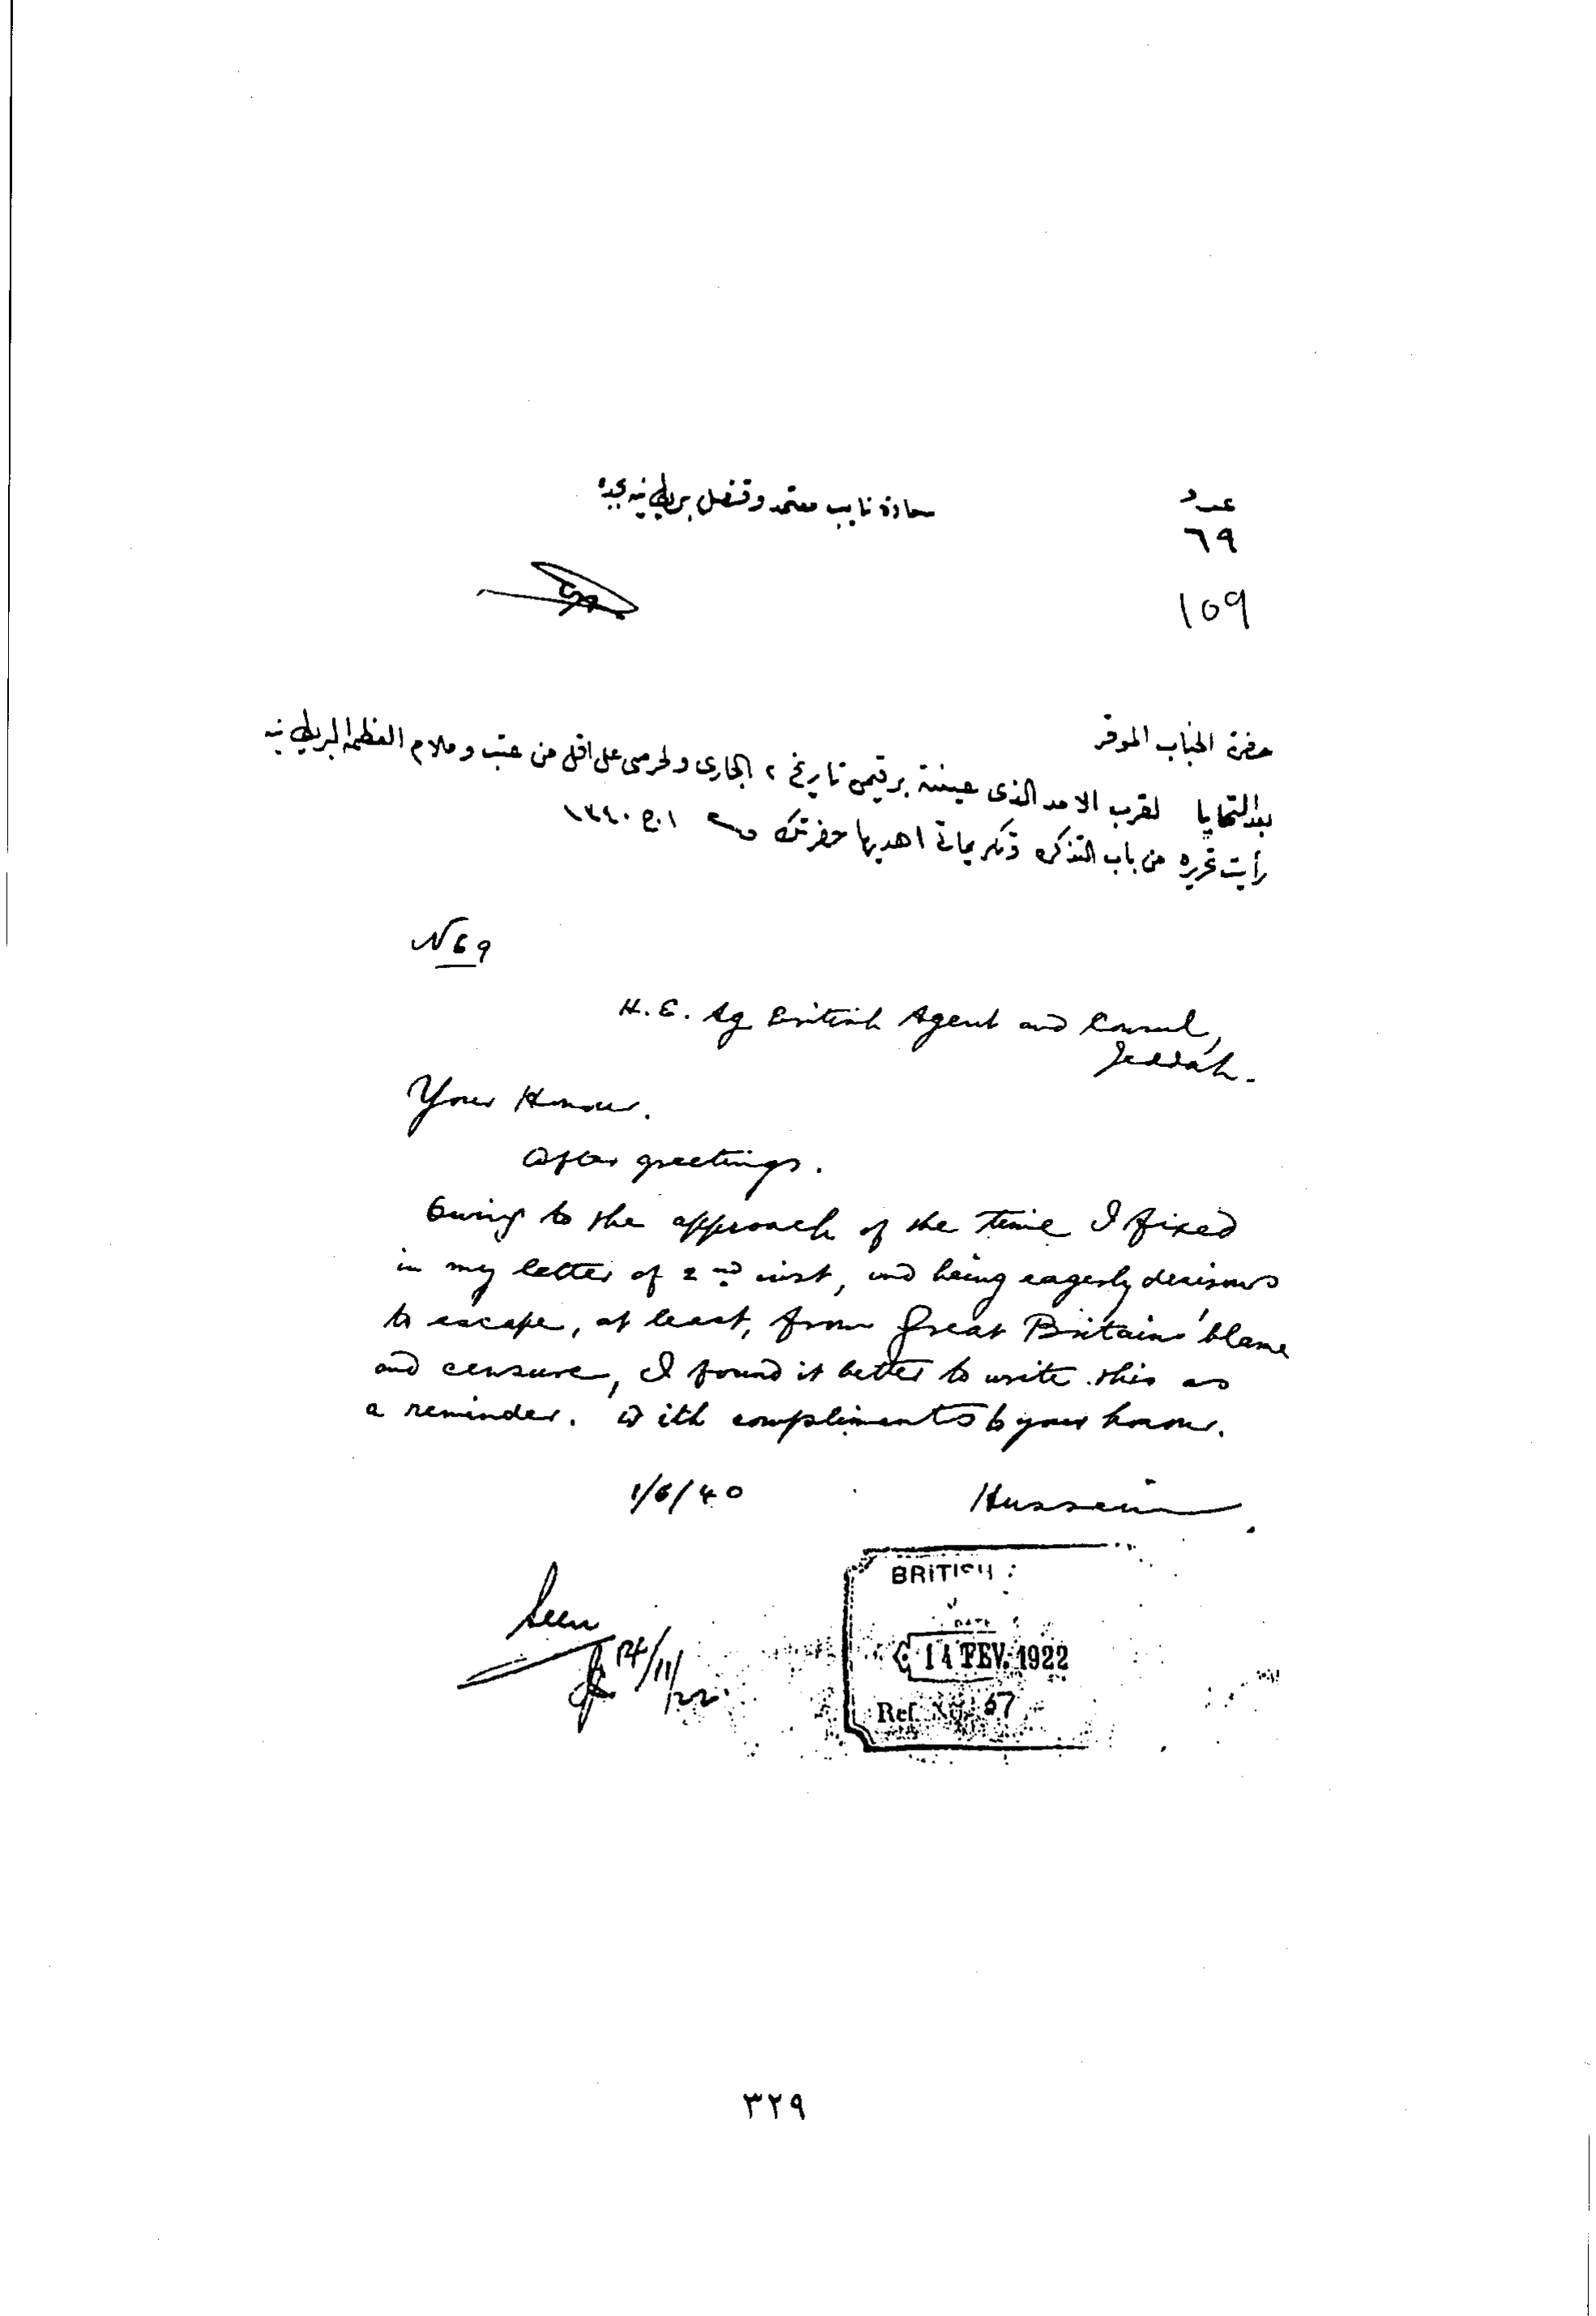 عدد
سعادة نايب معتمد وقنصل بريطانيه بجده
٦٩
109
حضرة الجناب الموقر
بعد التحايا لقرب الامد الذى عينته برقيمى تاريخ ٢ الجارى ولحرصى على اقل من عتب وملام العظمة البريطانيه
رأيت تحريره من باب التذكره وتكريماتى اهديها حضرتك ١٣٤٠
N 69
H. E. Ag British Agent and Consul,
Jeddah.
Your Honour.
After greetings.
Owing to the approach of the time I fixed
in my letter of 2nd inst, and being eagerly desirous
to escape, at least, from Great Britains' blame
and censure, I found it better to write this as
a reminder. With compliments to your honour.
1/6/40 Hussein
Seen
14/11/22
BRITISH
DATE
14 FEV. 1922
Ref. No. 67
٣٢٩